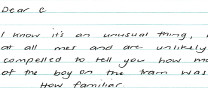 Dear e
I know it's an unusual thing,
at all mes and are unlikely
compelled to tell you how m
of the boy on the tram was
How familiar